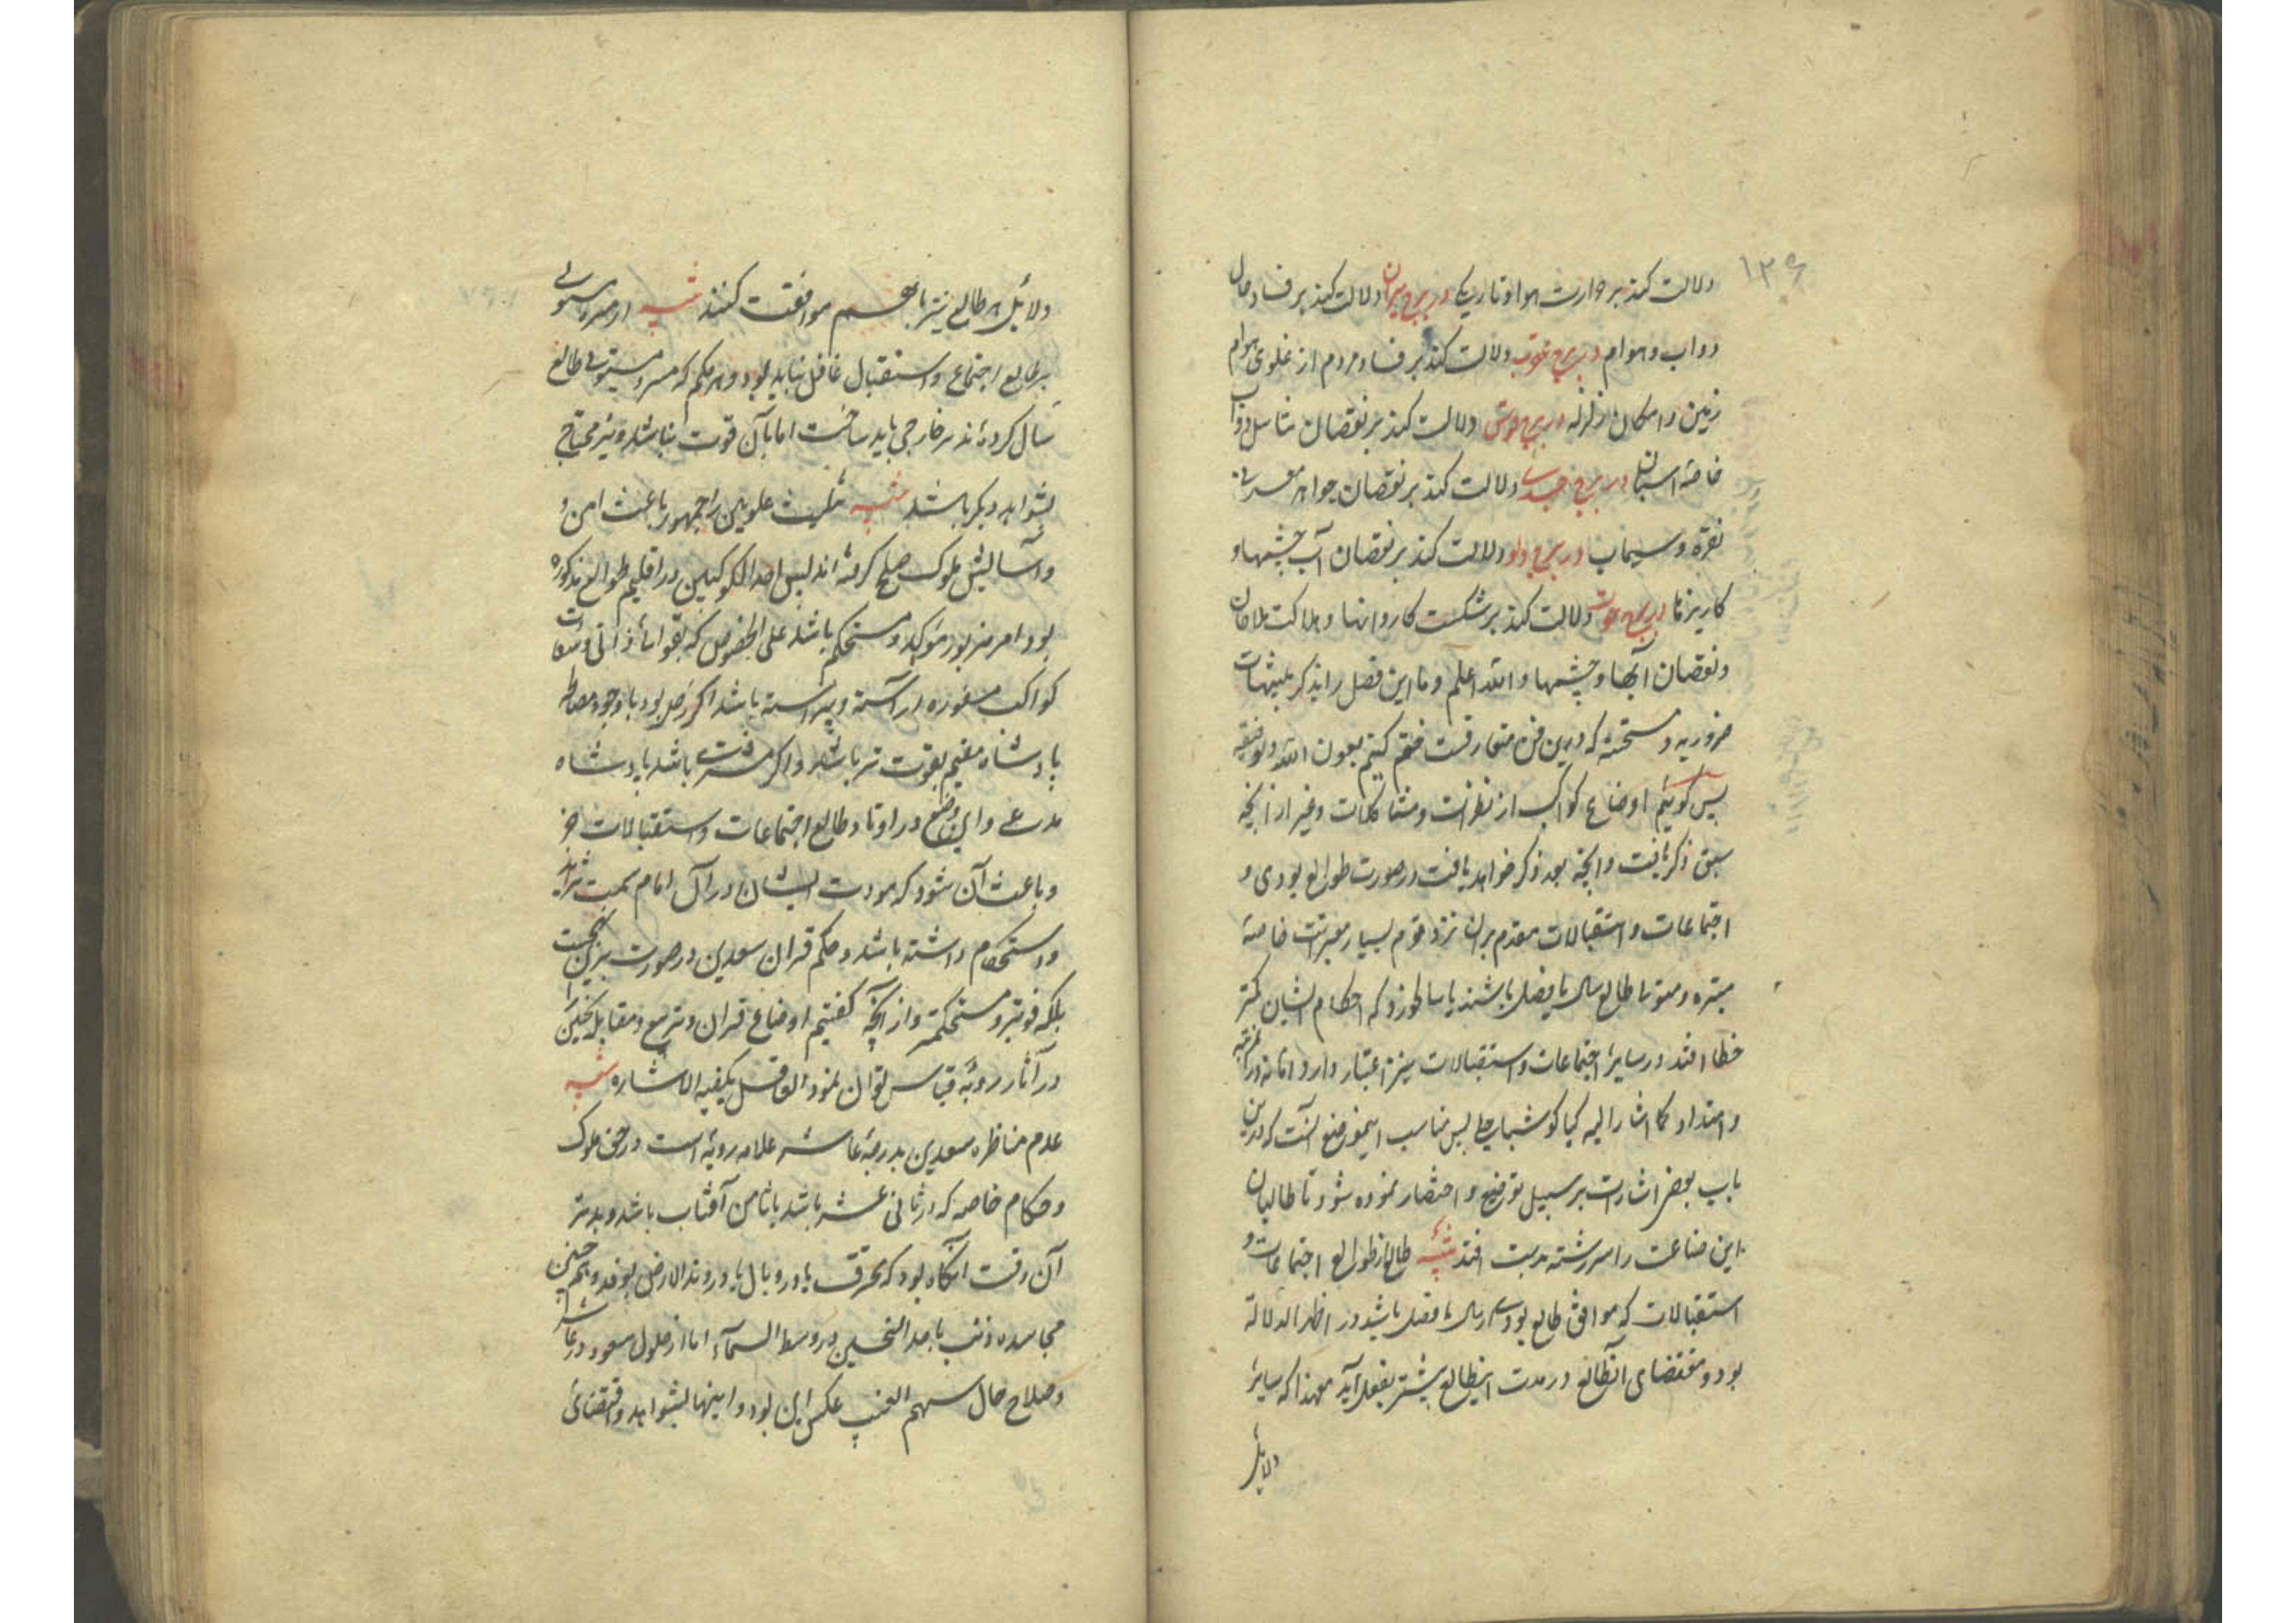 ۱۳۶
دلالت کند بر حرارت هوا و تاریکی در برج میزان دلالت کند بر فساد حال
دواب و هوام در برج عقرب دلالت کند بر فساد مردم از غلوی هوام
زمین و امکان زلزله در برج قوس دلالت کند بر نقصان تناسل دواب
خاصه اسبان در برج جدی دلالت کند بر نقصان جواهر معدنی
نقره و سیماب در برج دلو دلالت کند بر نقصان آب چشمها و
کاریزها در برج حوت دلالت کند بر شکست کاروانها و هلاکت ملاحان
و نقصان آبها و چشمها و الله اعلم و ما این فصل را بذکر تنبیهات
ضروریه و مستحسنه که درین فن متعارفست ختم کنیم بعون الله و توفیقه
پس گوییم اوضاع کواکب از نظرات و مشاکلات و غیر از آنچه
سبق ذکر یافت و آنچه بعد ذکر خواهد یافت در صورت طوالع بودی و
اجتماعات و استقبالات مقدم بر آن نزد قوم بسیار معتبرست خاصه
طالع سال یا فصل باشند یا سالخوزو که احکام ایشان کمتر
خطا افتد در سایر اجتماعات و استقبالات نیز اعتبار دارد اما نه در آن مرتبه
و امتداد کما اشار الیه کیا کوشیار جیلی پس مناسب اینموضع آنست که درین
باب بعض اشارات بر سبیل توضیح و اختصار نموده شود تا طالبان
این صناعت را سررشته بدست افتد تنبیه طالع از طوالع اجتماعات و
استقبالات که موافق طالع بودی سال یا فصل باشد در اظهر الدلالة
بود و مقتضای آنطالع در مدت اینطالع بیشتر بفعل آید معهذا که سایر
دلایل
دلائل هر طالع نیز با هم موافقت کنند تنبیه از مستولی
بر طالع اجتماع و استقبال غافل نباید بود و هر حکم که بر مستولی طالع
سال کرده‌اند بر خارجی باید ساخت اما بآن قوت نباشد و نیز محتاج
بشواهد دیگر باشند تنبیه تثلیث علویین را جمهور باعث امن و
و آسایش ملوک صلح گرفته‌اند پس احد الکوکبین در اقلیم طوالع مذکوره
بود امر مزبور موکد و مستحکم باشد علی الخصوص که بقوتهای ذاتی و سعادات
کواکب مسفوره آراسته و پیراسته باشد اگر زحل بود با وجود مصالحه
پادشاه مقیم بقوت‌تر باشد و اگر مشتریست باشد پادشاه
مدعی و این وضع در اوتاد طالع اجتماعات و استقبالات جز
و باعث آن شود که مودت ایشان در آن ایام سمت تزاید
و استحکام داشته باشد و حکم قران سعدین در صورت برین نهجست
بلکه قویتر و مستحکمتر و از آنچه گفتیم اوضاع قران و تربیع و مقابله نحسین
در آثار ردیه قیاس توان نمود العاقل یکفیه الاشاره تنبیه
عدم مناظره سعدین بدرجه عاشر علامه ردیه است در حق ملوک
و حکام خاصه که در ثانی عشر باشد یا ثامن آفتاب باشد و بدتر
آن وقت آنگاه بود که محترق یا در وبال یا در وتد الارض بوند و همچنین
مجاسده ذنب با احد النحسین در وسط السماء اما از حلول سعود در عاشر
و صلاح حال سهم الغیب عکس این بود و اینها بشواهد و اقتضای